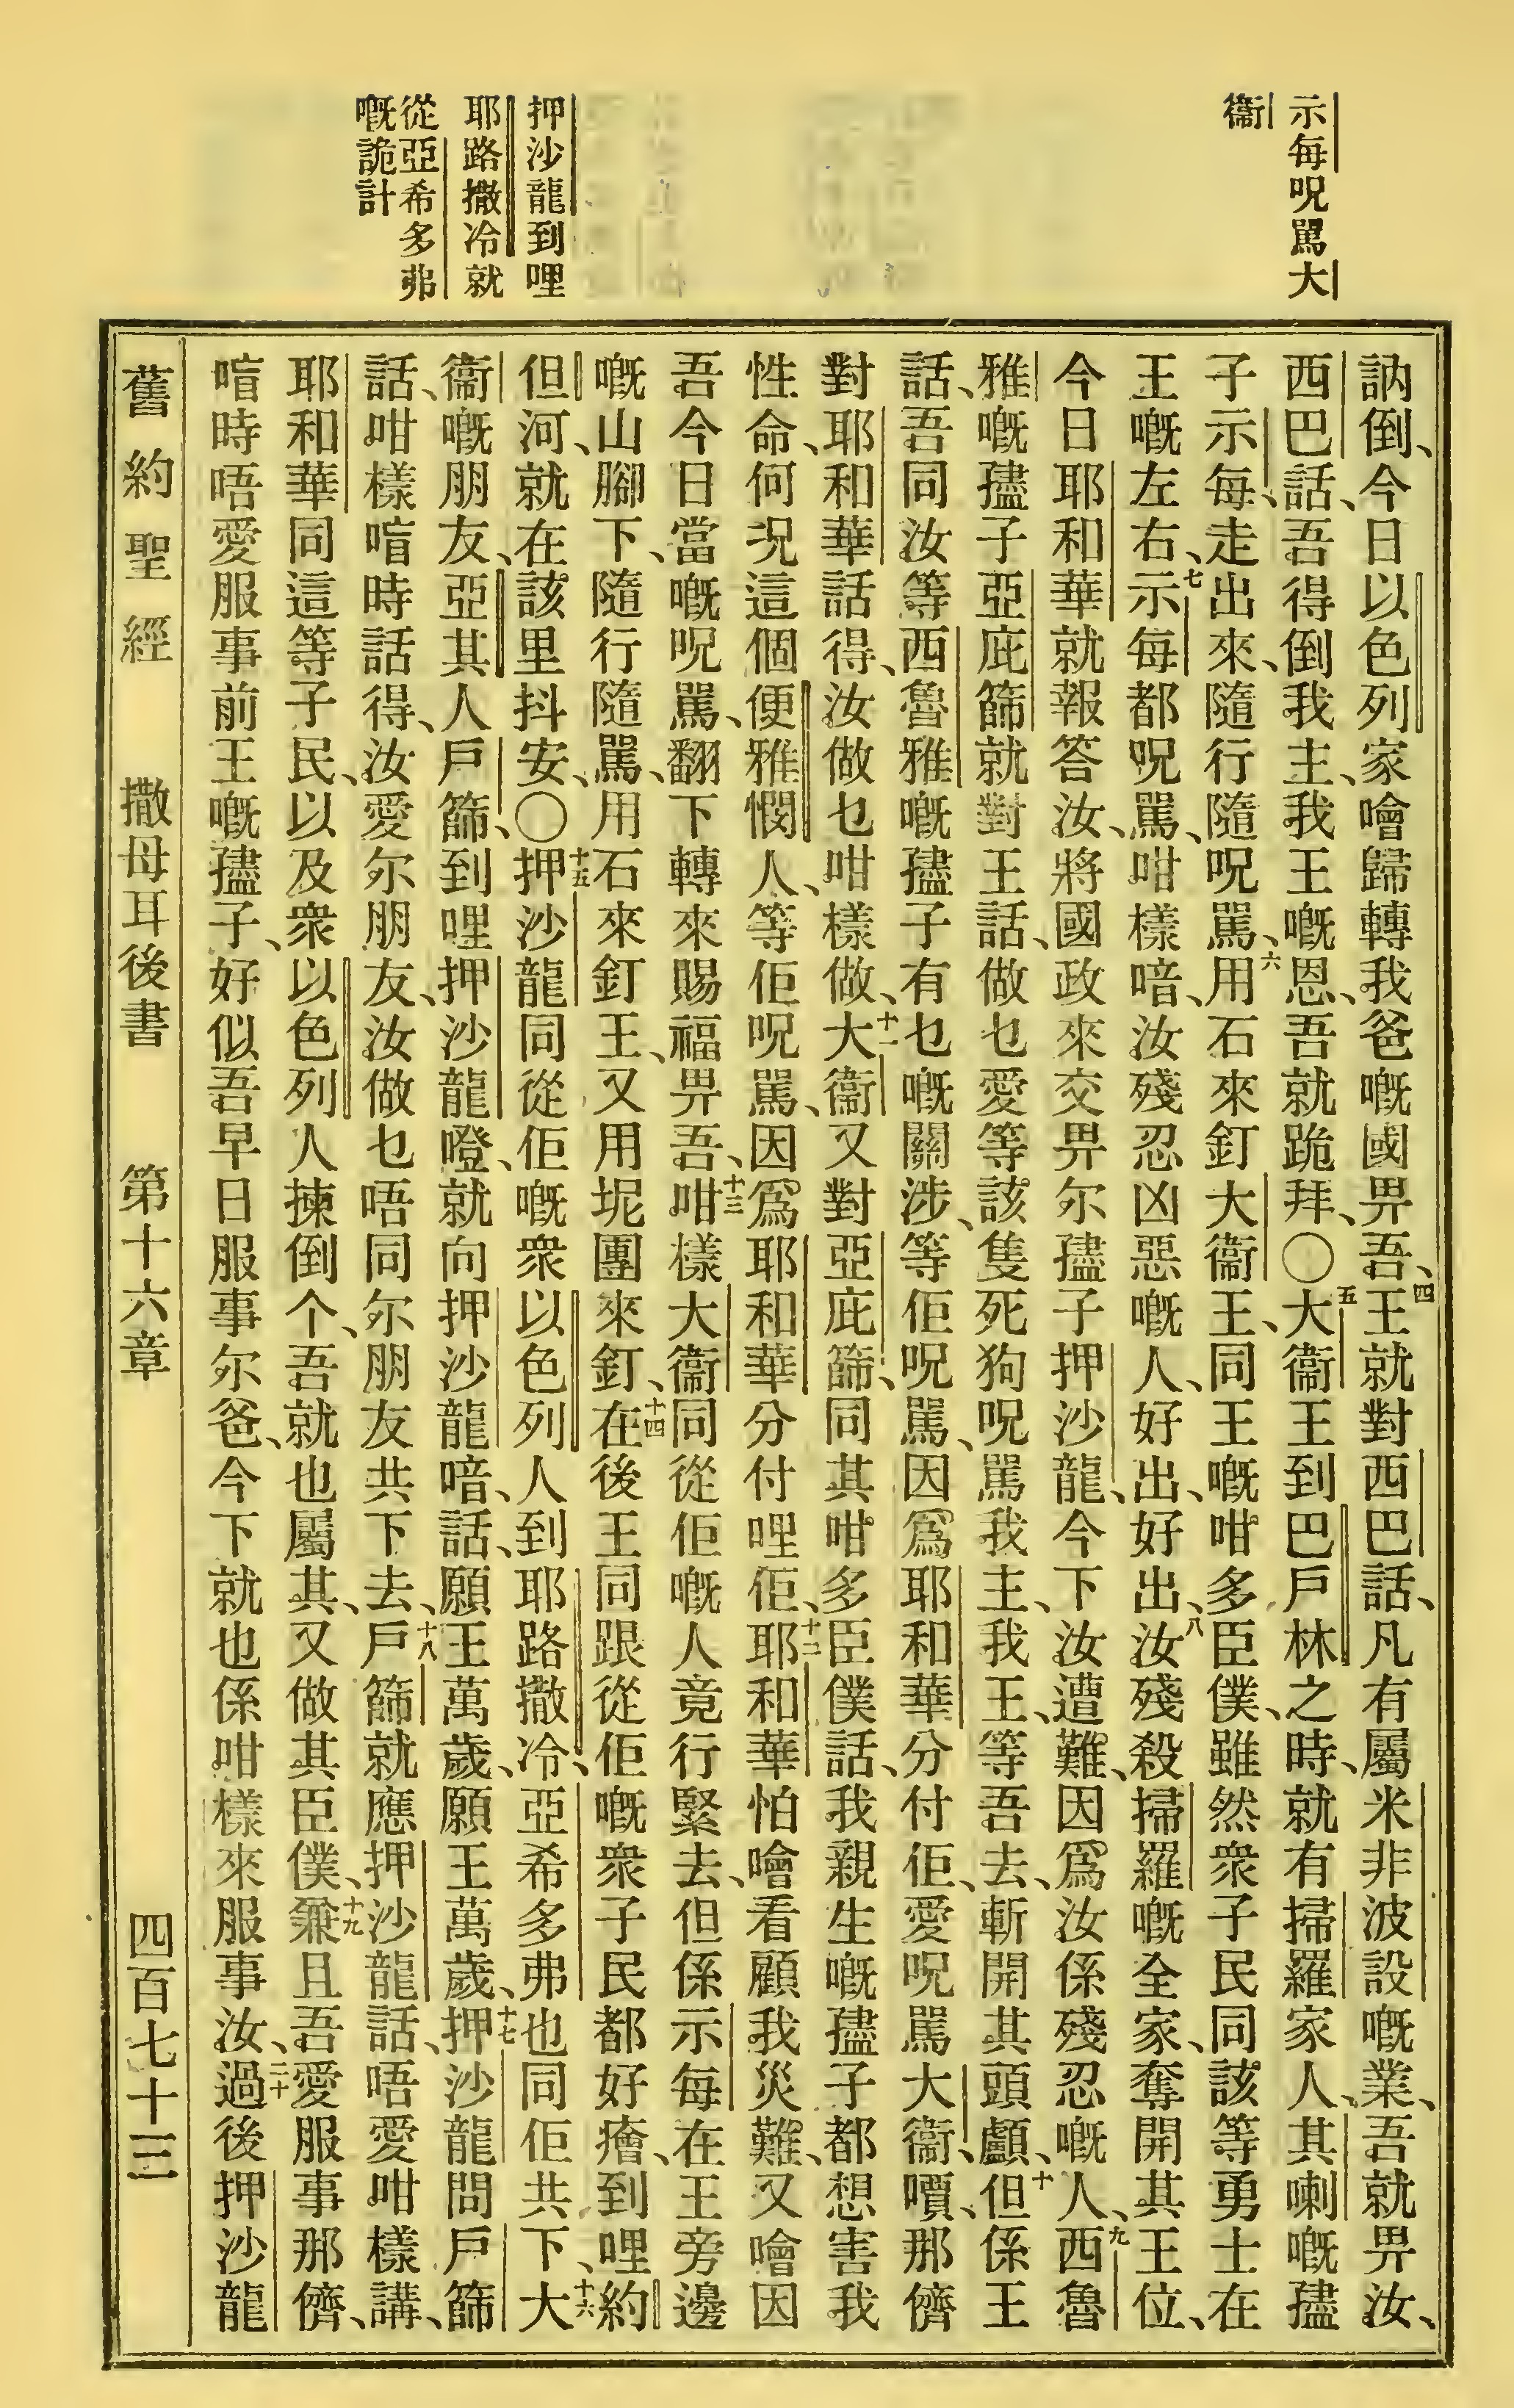 示每呪駡大
衞
押沙龍到哩
耶路撒冷就
從亞希多弗
嘅詭計
訥倒、今日以色列家噲歸轉我爸嘅國畀吾、四王就對西巴話、凡有屬米非波設嘅業、吾就畀汝、
西巴話、吾得倒我主、我王嘅恩、吾就跪拜、〇五大衞王到巴戶林之時、就有掃羅家人、其喇嘅𡥧
子示每、走出來、隨行隨呪駡、六用石來釘大衞王、同王嘅咁多臣僕、雖然衆子民同該等勇士在
王嘅左右、七示每都呪駡、咁樣喑、汝殘忍凶惡嘅人、好出、好出、八汝殘殺掃羅嘅全家、奪開其王位、
今日耶和華就報答汝、將國政來交畀尔𡥧子押沙龍、今下汝遭難、因爲汝係殘忍嘅人、九西魯
雅嘅𡥧子亞庇篩就對王話、做乜愛等該隻死狗呪駡我主、我王、等吾去、斬開其頭顱、十但係王
話、吾同汝等西魯雅嘅𡥧子有乜嘅關涉、等佢呪駡、因爲耶和華分付佢、愛呪駡大衞、嚽那儕
對耶和華話得、汝做乜咁樣做、十一大衞又對亞庇篩、同其咁多臣僕話、我親生嘅𡥧子都想害我
性命、何況這個便雅憫人、等佢呪駡、因爲耶和華分付哩佢、十二耶和華怕噲看顧我災難、又噲因
吾今日當嘅呪駡、翻下轉來賜福畀吾、十三咁樣大衞同從佢嘅人竟行緊去、但係示每在王旁邊
嘅山腳下、隨行隨駡、用石來釘王、又用坭團來釘、十四在後王同跟從佢嘅衆子民都好癐、到哩約
但河、就在該里抖安、〇十五押沙龍同從佢嘅衆以色列人到耶路撒冷、亞希多弗也同佢共下、十六大
衞嘅朋友、亞其人戶篩、到哩押沙龍嶝、就向押沙龍喑、話、願王萬歲、願王萬歲、十七押沙龍問戶篩
話、咁樣喑時話得、汝愛尔朋友、汝做乜唔同尔朋友共下去、十八戶篩就應押沙龍話、唔愛咁樣講、
耶和華同這等子民、以及衆以色列人揀倒个、吾就也屬其、又做其臣僕、十九兼且吾愛服事那儕、
喑時唔愛服事前王嘅𡥧子、好似吾早日服事尔爸、今下就也係咁樣來服事汝、二十過後押沙龍
舊約聖經　撒母耳後書　第十六章　四百七十三